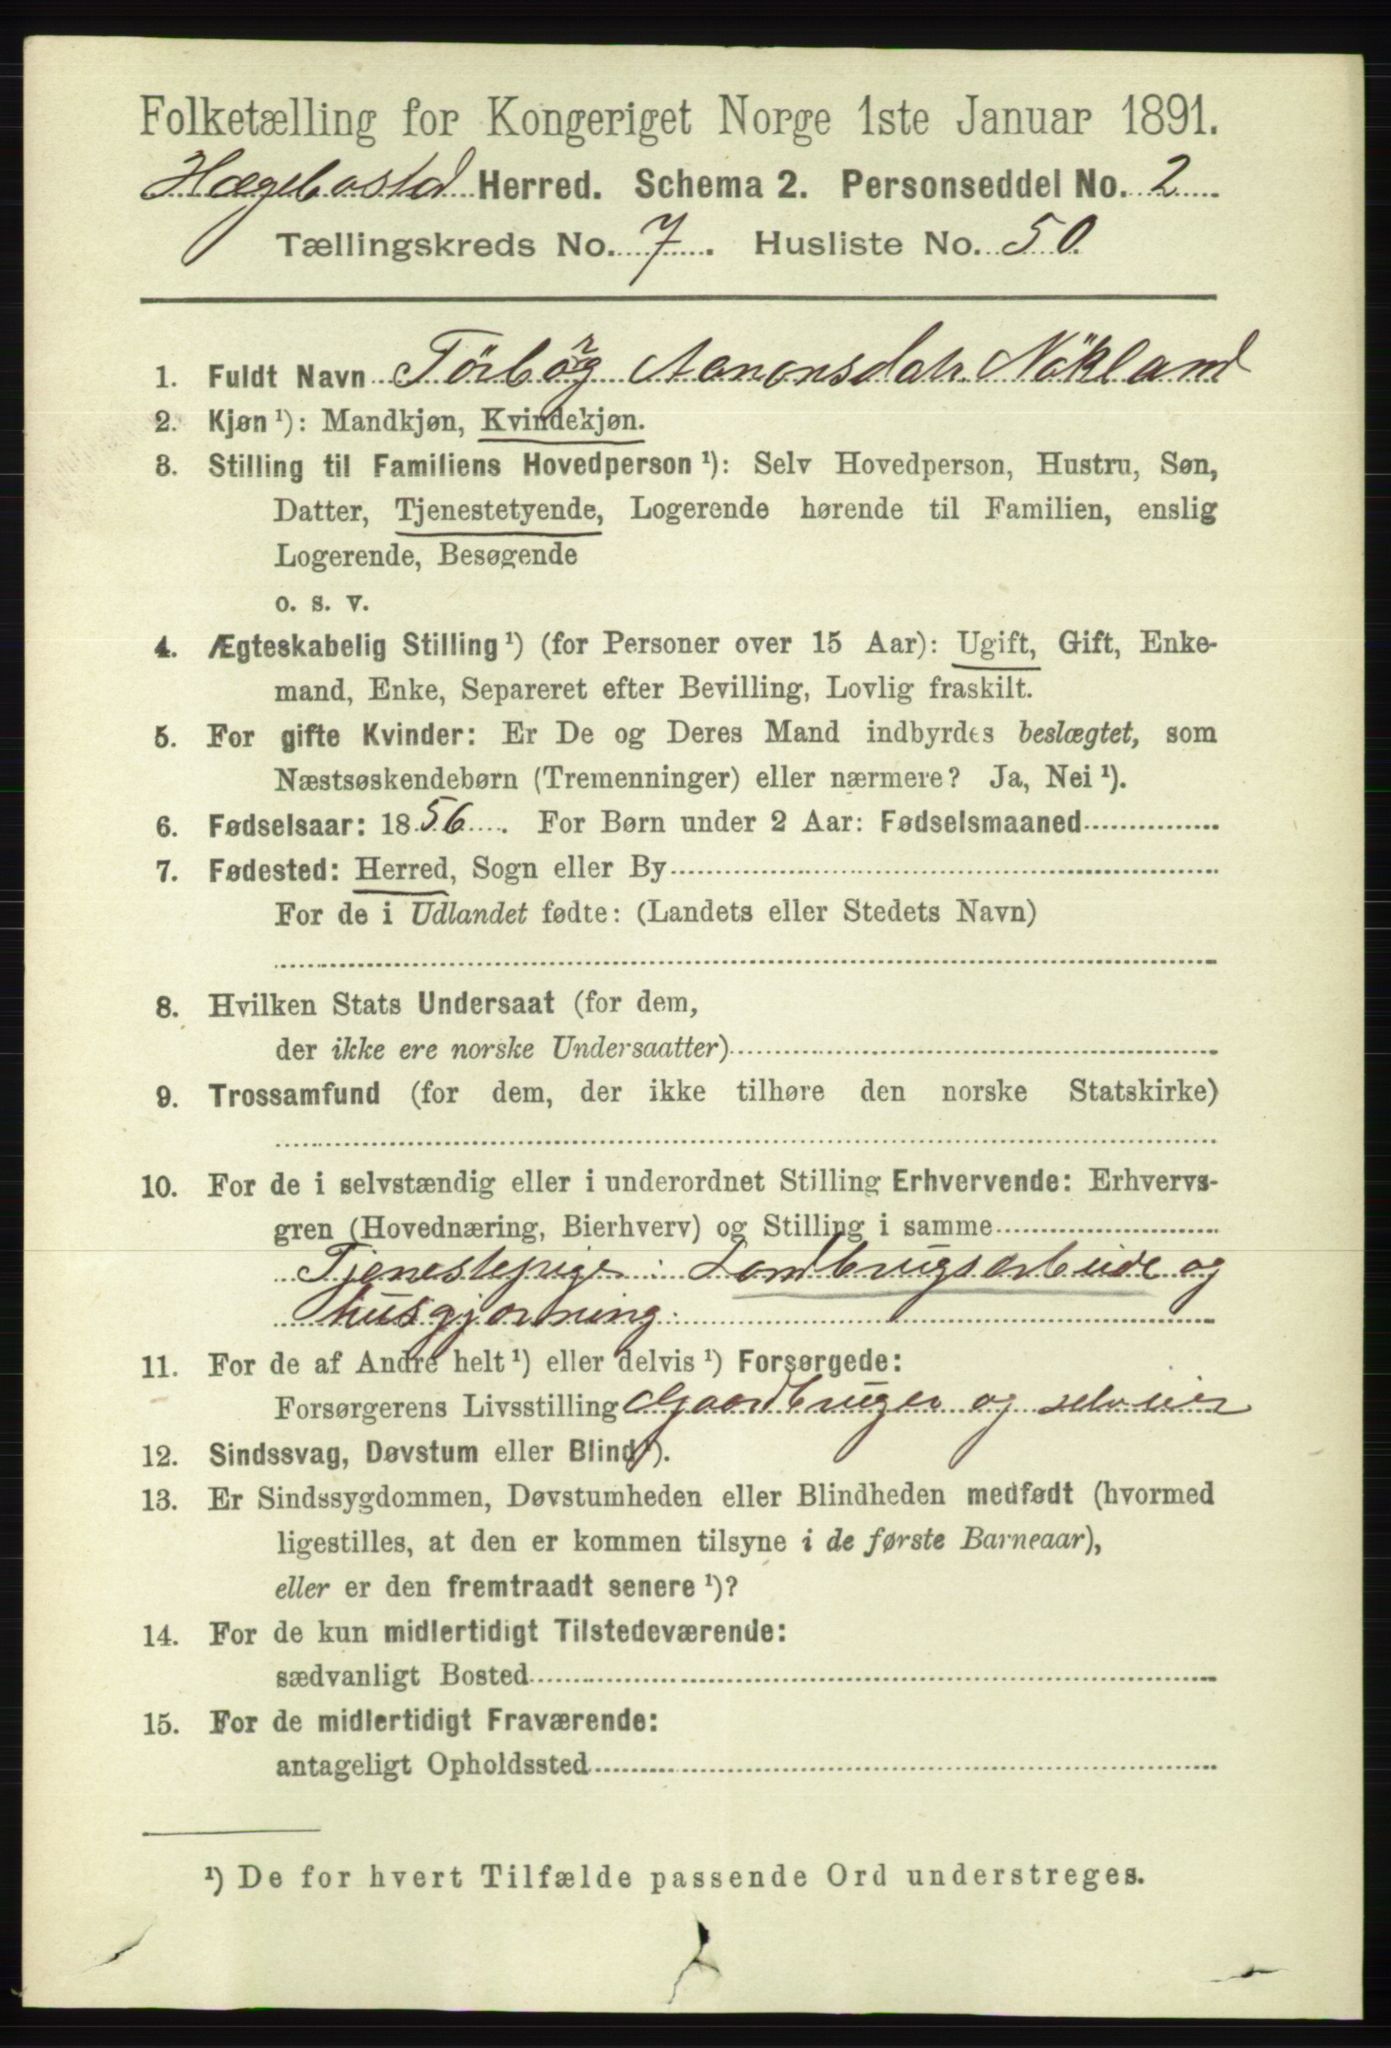 Folketælling for Kongeriget Norge 1ste Januar 1891.
Hægebostd Herred. Schema 2. Personseddel No. 2
Tællingskreds No. 7. Husliste No. 50
1. Fuldt Navn Törbörg Aanonsdatr. Nökland
2. Kjøn ¹): Mandkjøn, Kvindekjøn.
3. Stilling til Familiens Hovedperson ¹): Selv Hovedperson, Hustru, Søn,
Datter, Tjenestetyende, Logerende hørende til Familien, enslig
Logerende, Besøgende
o. s. v.
4. Ægteskabelig Stilling ¹) (for Personer over 15 Aar): Ugift, Gift, Enke-
mand, Enke, Separeret efter Bevilling, Lovlig fraskilt.
5. For gifte Kvinder: Er De og Deres Mand indbyrdes beslægtet, som
Næstsøskendebørn (Tremenninger) eller nærmere? Ja, Nei ¹).
6. Fødselsaar: 1856. For Børn under 2 Aar: Fødselsmaaned
7. Fødested: Herred, Sogn eller By
For de i Udlandet fødte: (Landets eller Stedets Navn)
8. Hvilken Stats Undersaat (for dem,
der ikke ere norske Undersaatter)
9. Trossamfund (for dem, der ikke tilhøre den norske Statskirke)
10. For de i selvstændig eller i underordnet Stilling Erhvervende: Erhvervs-
gren (Hovednæring, Bierhverv) og Stilling i samme
Tjenestepige: Landbrugsarbeide og
husgjorning.
11. For de af Andre helt ¹) eller delvis ¹) Forsørgede:
Forsørgerens Livsstilling Gaardbruger og selveier
12. Sindssvag, Døvstum eller Blind ¹).
13. Er Sindssygdommen, Døvstumheden eller Blindheden medfødt (hvormed
ligestilles, at den er kommen tilsyne i de første Barneaar),
eller er den fremtraadt senere ¹)?
14. For de kun midlertidigt Tilstedeværende:
sædvanligt Bosted
15. For de midlertidigt Fraværende:
antageligt Opholdssted
¹) De for hvert Tilfælde passende Ord understreges.